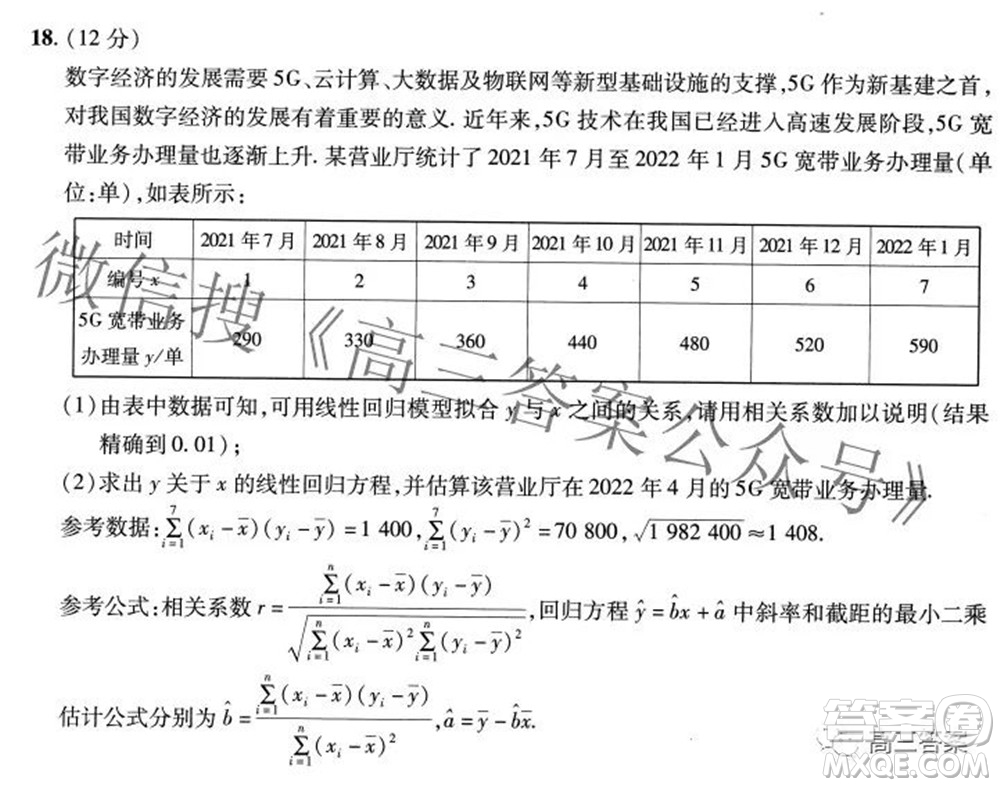 18. (12 分)
数字经济的发展需要 5G、云计算、大数据及物联网等新型基础设施的支撑,5G 作为新基建之首,
对我国数字经济的发展有着重要的意义. 近年来,5G 技术在我国已经进入高速发展阶段,5G 宽
带业务办理量也逐渐上升. 某营业厅统计了 2021 年 7 月至 2022 年 1 月 5G 宽带业务办理量(单
位:单),如表所示:
时间 2021 年 7 月 2021 年 8 月 2021 年 9 月 2021 年 10 月 2021 年 11 月 2021 年 12 月 2022 年 1 月
编号 x 1 2 3 4 5 6 7
5G 宽带业务
办理量 y/单 290 330 360 440 480 520 590
(1) 由表中数据可知,可用线性回归模型拟合 y 与 x 之间的关系,请用相关系数加以说明(结果
精确到 0. 01);
(2) 求出 y 关于 x 的线性回归方程,并估算该营业厅在 2022 年 4 月的 5G 宽带业务办理量.
参考数据:∑_{i=1}^{7}(x_i − x̄)(y_i − ȳ) = 1 400, ∑_{i=1}^{7}(y_i − ȳ)² = 70 800, √1 982 400 ≈ 1 408.
参考公式:相关系数 r = ∑_{i=1}^{n}(x_i − x̄)(y_i − ȳ) / √(∑_{i=1}^{n}(x_i − x̄)² ∑_{i=1}^{n}(y_i − ȳ)²), 回归方程 ŷ = b̂x + â 中斜率和截距的最小二乘
估计公式分别为 b̂ = ∑_{i=1}^{n}(x_i − x̄)(y_i − ȳ) / ∑_{i=1}^{n}(x_i − x̄)², â = ȳ − b̂x̄.
微信搜《高二答案公众号》
答案圈
高二答案
MXQE.COM